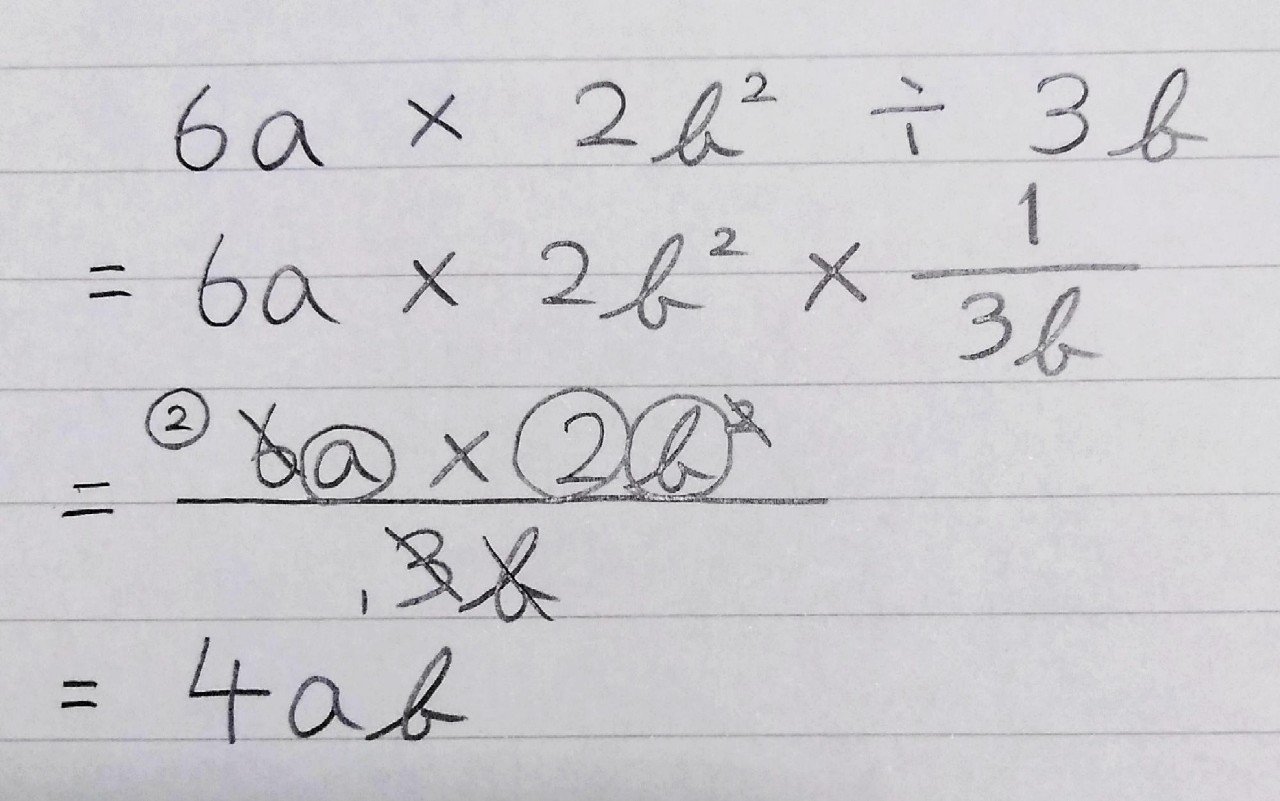 6a × 2b² ÷ 3b
= 6a × 2b² × 1/3b
= ② 6a × 2b² / 1 3b
= 4ab